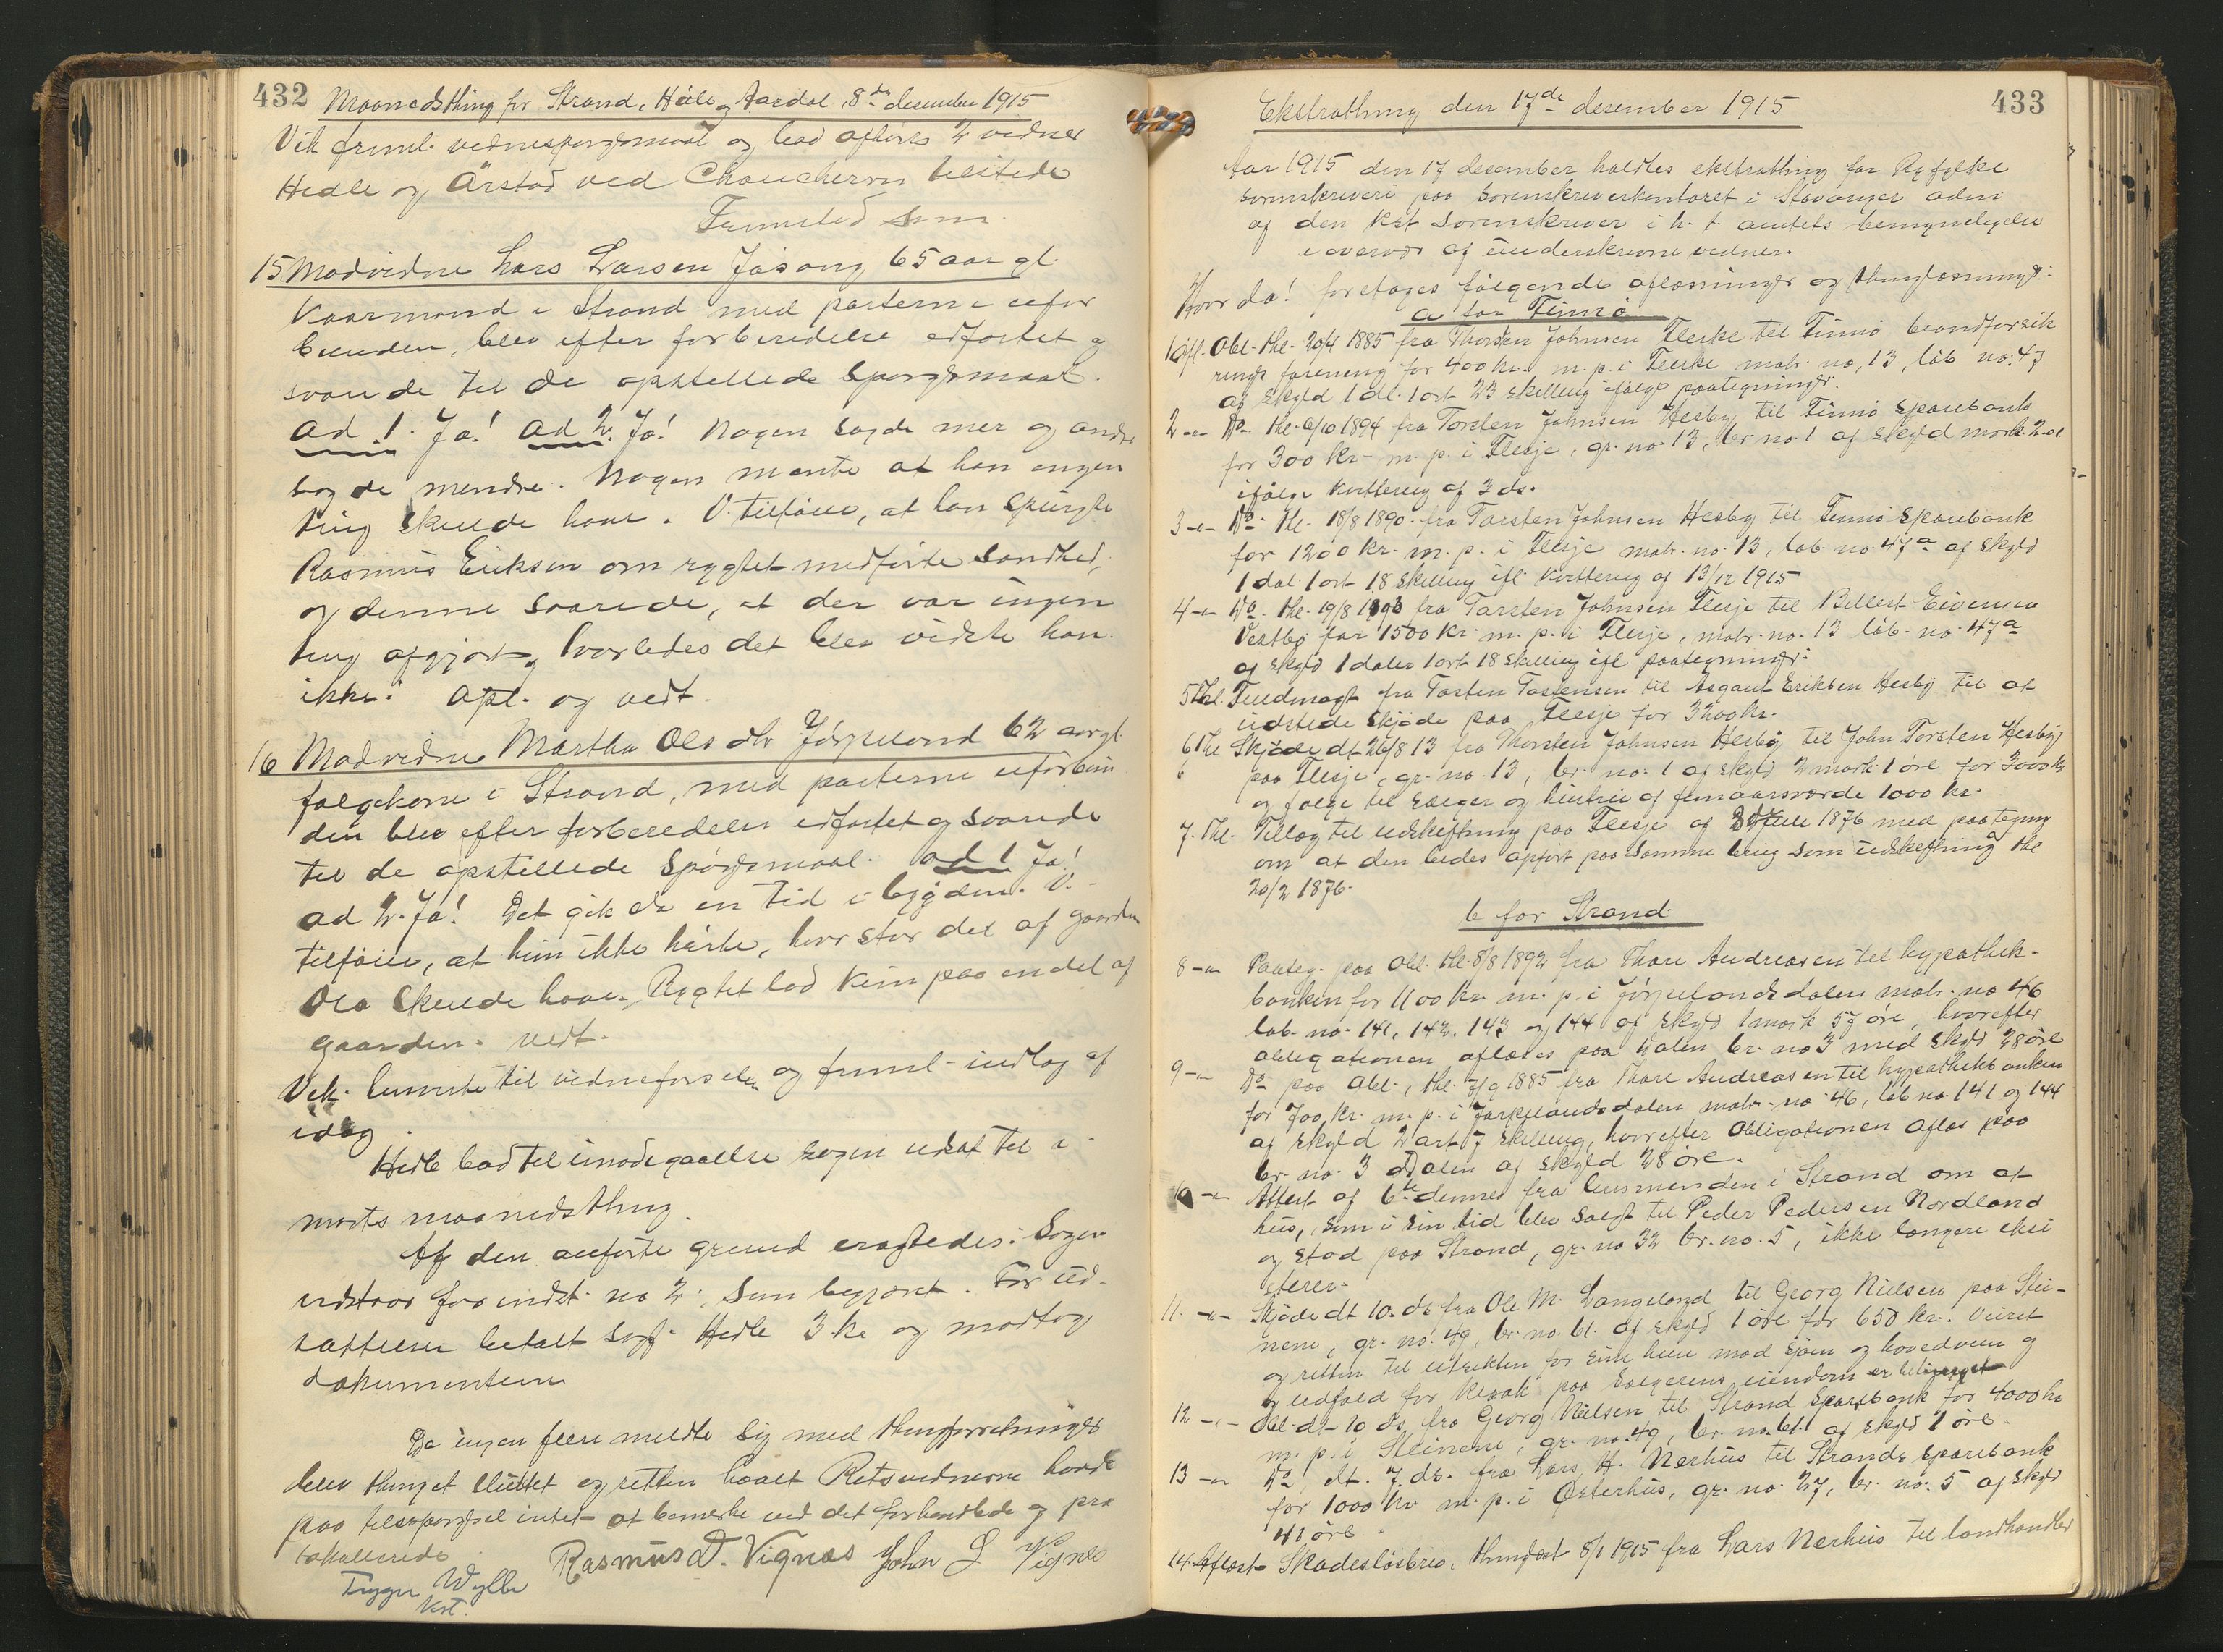 432 Maanedsthing for Strand, Hæle og Aardal, 8de desember 1915
Vek freml. vidnespørgsmaal og bad afhørt 2 vidner
Hedle og Årstad ved
Fremstod som
15 Modvidne Lars Larsen Jøsang 65 aar gl.
Kaarmand i Strand med parterne ufor
bunden, blev efter forberedelse edfæstet og
svarede til de opstillede spørgsmaal.
ad 1. Ja! ad 2. Ja! Nogen sagde mer og andre
sagde mendre. Nogen mente at han ingen
ting skulde have. V. tilføier, at han spurgte
Rasmus Eriksen om rygtet medførte sandhed,
og denne svarede, at der var ingen
ting afgjort, hvorledes det blev vidste han
ikke. Opl. og vedt.
16 Modvidne Martha Olsdtr Jørpeland 62 aar gl.
følgekone i Strand, med parterne uforbun
den blev efter forberedelse edfæstet og svarede
til de opstillede spørgsmaal. ad 1 Ja!
ad 2. Ja! Det gik da en tid i bygden. V.
tilføier, at hun ikke hørte, hvor stor del af gaarden
Ola skulde have, Rygtet lød kun paa en del af
gaarden. vedt.
Vek. henviste til vidneførselen og freml. indlæg af
idag.
Hedle bad til imødegaaelse sagen udsat til
marts maanedsthing.
Af den anførte grund eragtedes: Sagen
udstaar for indst. no 2, som begjæret. For ud-
sættelsen betalt sagf. Hedle 3 kr og modtog
dokumenterne
Da ingen flere meldte sig med thingforretninger
blev thinget sluttet og retten hævet Retsvidnerne havde
paa tilspørgsel intet at bemerke ved det forhandlede og pro
tokollerede
Rasmus D. Vignæs John L Vignes
Trygve Wyller
kst.
Ekstrathing den 17de desember 1915 433
Aar 1915 den 17 desember holdtes ekstrathing for Ryfylke
sorenskriveri paa sorenskriverkontoret i Stavanger adm
af den kst sorenskriver i h. t. amtets bemyndigelse
i overvær af underskrevne vidner.
Hvor da! foretages følgende aflæsninger og thinglæsninger:
a for Finnø
1 Afl. Obl. thl. 20/4 1885 fra Thorsten Johnsen Fleske til Finnø brandforsik
rings forening for 400 kr. m. p. i Fleske matr. no. 13, løb no. 47
af skyld 1 dl. 1 ort 23 skilling ifølge paategninger.
2 -"- Do thl. 6/10 1894 fra Torsten Johnsen Hesby til Finnø sparebank
for 300 kr. m. p. i Flesje, gr. no. 13, br. no. 1 af skyld mark 2.01
ifølge kvittering af 3 ds.
3 -"- Do thl. 18/8 1890 fra Torsten Johnsen Hesby til Finnø sparebank
for 1200 kr. m. p. i Flesje matr. no. 13, løb. no. 47a af skyld
1 dal. 1 ort. 18 skilling ifl. kvittering af 13/12 1915
4 -"- Do. thl. 19/8 1893 fra Torsten Johnsen Flesje til Eivensen
Vestbø for 1500 kr. m. p. i Flesje, matr. no. 13 løb. no. 47a
af skyld 1 daler 1 ort 18 skilling ifl. paategninger.
5 Thl. Fuldmagt fra Tosten Tostensen til Asgaut Eriksen Hesby til at
udstede skjøde paa Flesje for 3200 kr.
6 Thl Skjøde dt. 26/8 13 fra Thorsten Johnsen Hesby til John Torsten Hesby
paa Flesje, gr. no. 13, br. no. 1 af skyld 2 mark 1 øre for 3000 kr
og følge til sælger og hustru af femaarsværde 1000 kr.
7. Thl. Tillæg til udskiftning paa Flesje af 1876 med paategning
om at den bedes opført paa samme brug som udskiftning thl
20/2 1876.
b for Strand
8 -"- Paateg. paa Obl. thl. 8/8 1892 fra Thore Andreasen til hypothek-
banken for 1100 kr. m. p. i Jørpelandsdalen matr. no 46
løb. no. 141, 142, 143 og 144 af skyld 1 mark 57 øre, hvorefter
obligationen aflæses paa Dalen br. no 3 med skyld 28 øre
9 -"- Do paa Obl., thl. 7/9 1885 fra Thore Andreasen til hypothekbanken
for 700 kr. m. p. i Jørpelandsdalen matr. no. 46, løb no. 141 og 144
af skyld 2 ort 7 skilling, hvorefter Obligationen aflæs paa
br. no. 3 Dalen af skyld 28 øre.
10 -"- Attest af 6te dennes fra lensmanden i Strand om at
hus, som i sin tid blev solgt til Peder Pedersen Nordland
og stod paa Strand, gr. no 32 br. no. 5, ikke længere eksi
sterer.
11. -"- Skjøde dt 10. ds fra Ole M. Langeland til Georg Nielsen paa Stei-
nene, gr. no. 49, br. no. 61. af skyld 1 øre for 650 kr. Veiret
og retten til utsikten for sine huse mod sjøen og hovedveien og
og udfald for kloak paa sælgerens eiendom er betinget
12 -"- Obl. dt 10 ds fra Georg Nielsen til Strand Sparebank for 4000 kr
m. p. i Steinene, gr. no. 49, br. no. 61 af skyld 1 øre.
13 -"- Do, dt. 7. ds. fra Lars H. Nerhus til Strands sparebank
for 1000 kr m. p. i Østerhus, gr. no. 27, br. no. 5 af skyld
41 øre.
14 Aflæst Skadesløsbrev, thinglæst 8/1 1915 fra Lars Nerhus til landhandler